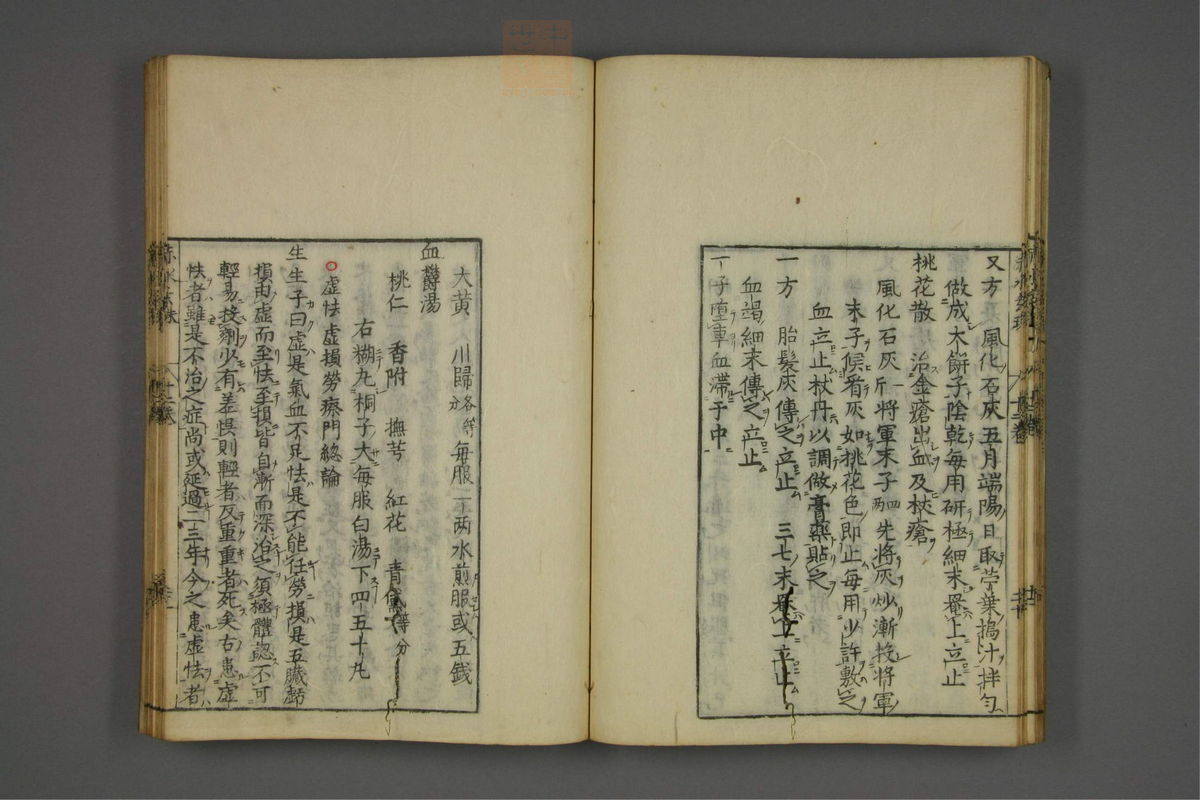 又方 風化石灰五月端陽日取苧葉搗汁拌勻
做成大餅子陰乾每用研極細末罨上立止
桃花散 治金瘡出血及杖瘡
風化石灰一斤將軍末子四兩先將灰炒漸投將軍
末子候看灰如桃花色即止每用少許敷之
血立止杖丹以調做膏藥貼之
一方 胎髮灰傳之立止 三七末罨上立止
血竭細末傳之立止
丁子墮車血滯于中
大黃 川歸各等分 每服一两水煎服或五錢
血鬱湯
桃仁 香附 撫芎 紅花 青黛各等分
右糊丸桐子大每服白湯下四五十丸
○虛怯虛損勞瘵門總論
生生子曰虛是氣血不足怯是不能任勞損是五臟虧
損由虛而至怯至損皆自漸而深治之須極體認不可
輕易投劑少有差惧則輕者反重重者死矣右患虛
怯者雖是不治之症尚或延過二三年今之患虛怯者